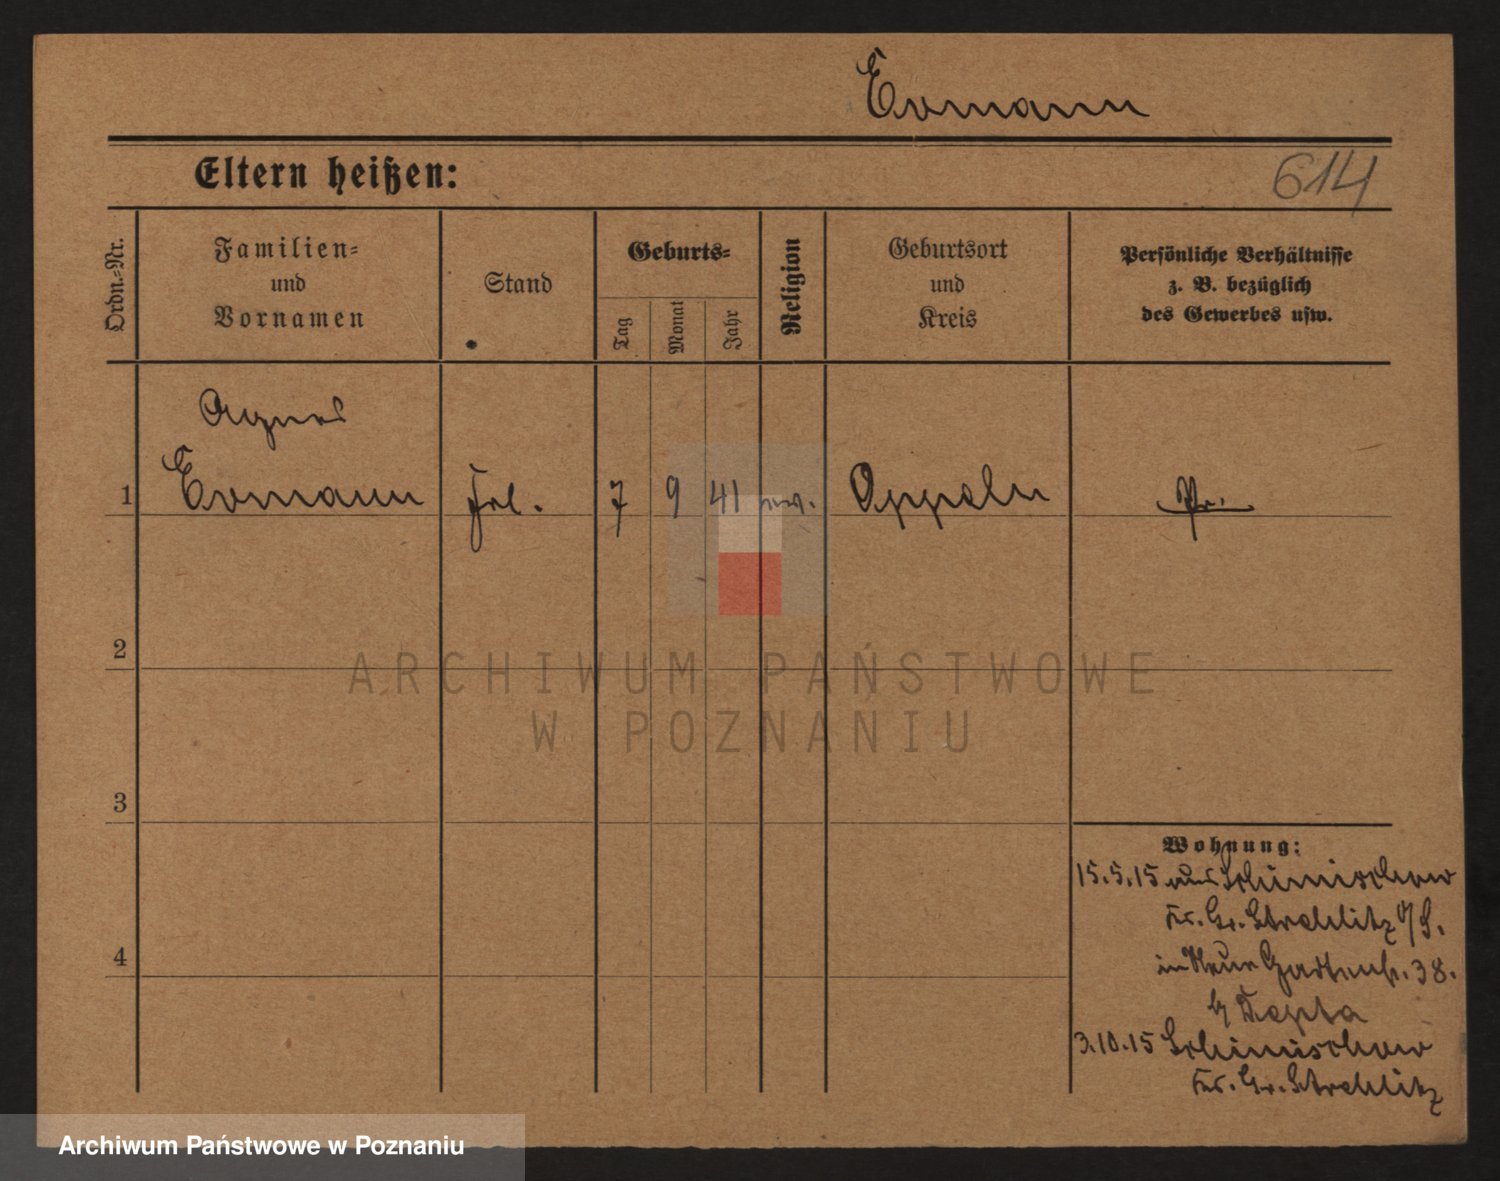 Ermann
Eltern heißen:
614
Ordn.-Nr.
Familien-
und
Vornamen
Stand
Geburts-
Tag
Monat
Jahr
Religion
Geburtsort
und
Kreis
Persönliche Verhältnisse
z. B. bezüglich
des Gewerbes usw.
Agnes
1 Ermann Frl. 7 9 41 Oppeln Pr.
2
3
4
Wohnung:
15.5.15 aus Schimischow
Kr. Gr. Strehlitz O/S.
in Neue Gartenstr. 38.
b/
3.10.15 Schimischow
Kr. Gr. Strehlitz
ARCHIWUM PAŃSTWOWE
W POZNANIU
Archiwum Państwowe w Poznaniu